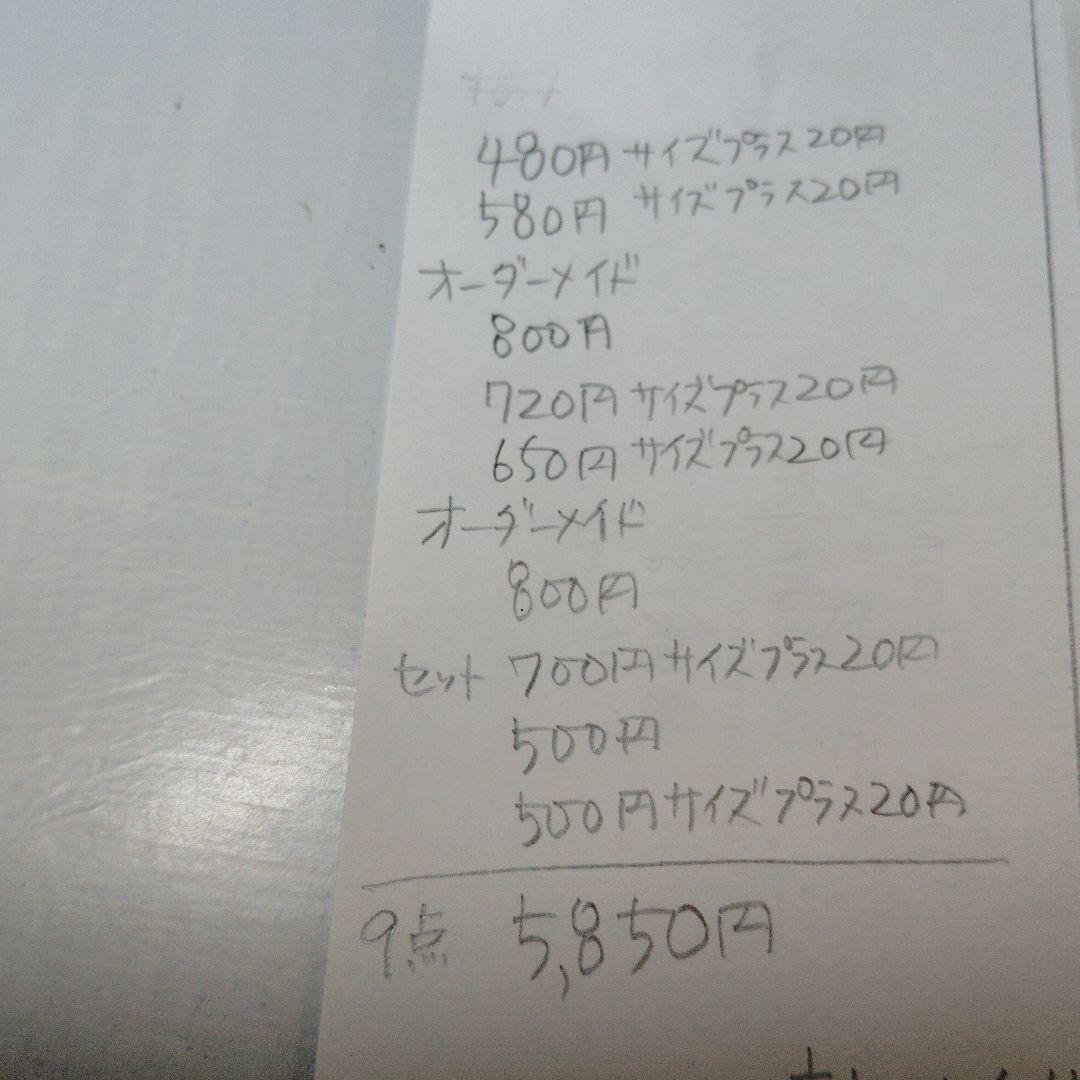 480円 サイズプラス20円
580円 サイズプラス20円
オーダーメイド
800円
720円 サイズプラス20円
650円 サイズプラス20円
オーダーメイド
800円
セット 700円 サイズプラス20円
500円
500円 サイズプラス20円
9点 5,850円